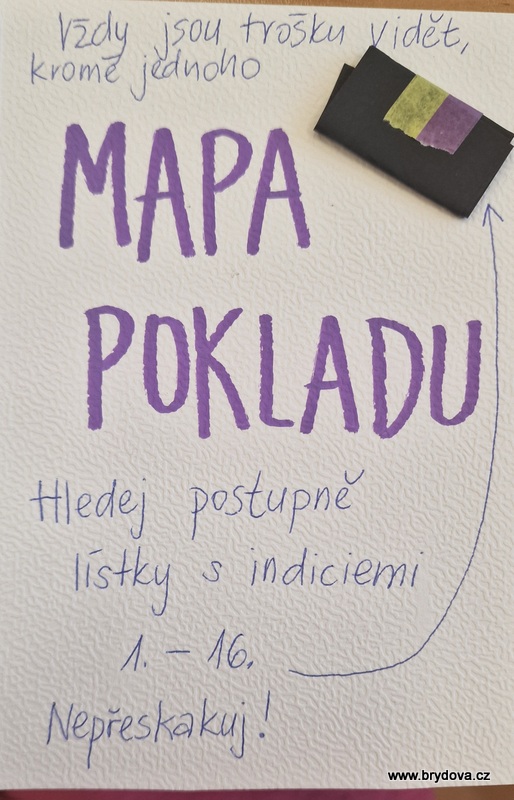 Vždy jsou trošku vidět,
kromě jednoho
MAPA
POKLADU
Hledej postupně
lístky s indiciemi
1. – 16.
Nepřeskakuj!
www.brydova.cz